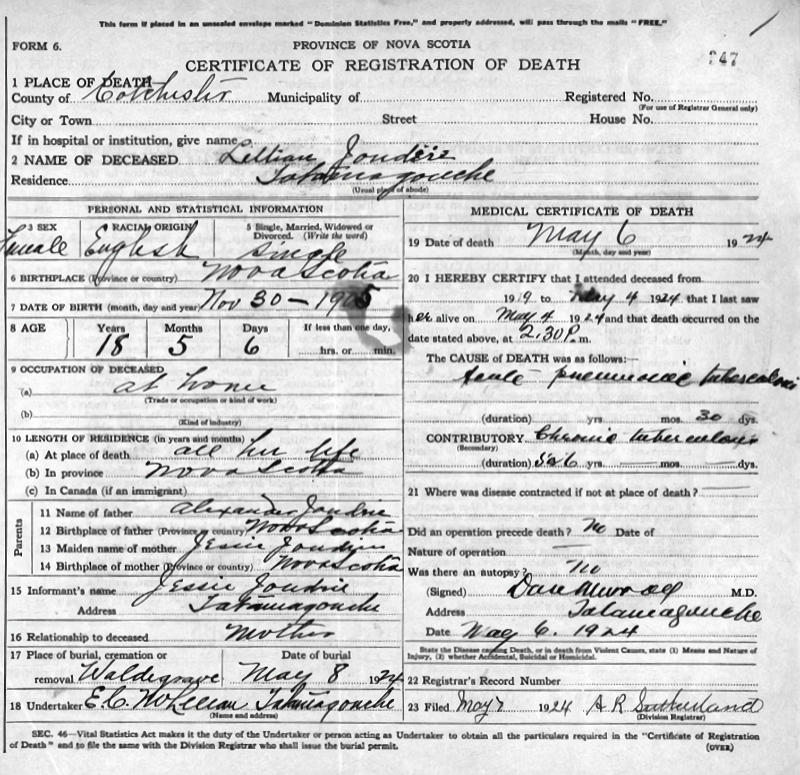 This form if placed in an unsealed envelope marked "Dominion Statistics Free," and properly addressed, will pass through the mails "FREE."
FORM 6.
PROVINCE OF NOVA SCOTIA
CERTIFICATE OF REGISTRATION OF DEATH
347
1 PLACE OF DEATH
County of Colchester Municipality of Registered No.
(For use of Registrar General only)
City or Town Street House No.
If in hospital or institution, give name
2 NAME OF DECEASED Lillian Joudrie
Residence Tatamagouche
(Usual place of abode)
PERSONAL AND STATISTICAL INFORMATION
3 SEX RACIAL ORIGIN 5 Single, Married, Widowed or Divorced. (Write the word)
Female English Single
6 BIRTHPLACE (Province or country) Nova Scotia
7 DATE OF BIRTH (month, day and year) Nov 30 - 1905
8 AGE Years Months Days If less than one day,
18 5 6 hrs. or min.
9 OCCUPATION OF DECEASED
(a) at home
(Trade or occupation or kind of work)
(b)
(Kind of industry)
10 LENGTH OF RESIDENCE (in years and months)
(a) At place of death all her life
(b) In province Nova Scotia
(c) In Canada (if an immigrant)
Parents
11 Name of father Alexander Joudrie
12 Birthplace of father (Province or country) Nova Scotia
13 Maiden name of mother Jessie Joudrie
14 Birthplace of mother (Province or country) Nova Scotia
15 Informant's name Jessie Joudrie
Address Tatamagouche
16 Relationship to deceased Mother
17 Place of burial, cremation or Date of burial
removal Waldegrave May 8 1924
18 Undertaker E.C. McLellan Tatamagouche
(Name and address)
MEDICAL CERTIFICATE OF DEATH
19 Date of death May 6 1924
(Month, day and year)
20 I HEREBY CERTIFY that I attended deceased from
1919 to May 4 1924 that I last saw
her alive on May 4 1924 and that death occurred on the
date stated above, at 2.30 P.m.
The CAUSE OF DEATH was as follows:—
Acute pneumonic tuberculosis
(duration) yrs mos. 30 dys.
CONTRIBUTORY Chronic tuberculosis
(Secondary)
(duration) 5 or 6 yrs. mos. dys.
21 Where was disease contracted if not at place of death?
Did an operation precede death? No Date of
Nature of operation
Was there an autopsy? No
(Signed) Dan Murray M.D.
Address Tatamagouche
Date May 6. 1924
State the Disease causing Death, or in death from Violent Causes, state (1) Means and Nature of Injury, (2) whether Accidental, Suicidal or Homicidal.
22 Registrar's Record Number
23 Filed May 7 1924 A R Sutherland
(Division Registrar)
SEC. 46—Vital Statistics Act makes it the duty of the Undertaker or person acting as Undertaker to obtain all the particulars required in the "Certificate of Registration
of Death" and to file the same with the Division Registrar who shall issue the burial permit.
(OVER)